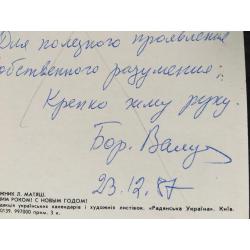 Для полезного проявления
обственного разумения;
Крепко жму руку.
Бор.
23.12.87
ЖНИК Л. МАТЯШ.
ВИМ РОКОМ! С НОВЫМ ГОДОМ!
українських календарів і художніх листівок. «Радянська Україна». Київ.
0139. 997000 прим. 3 к.